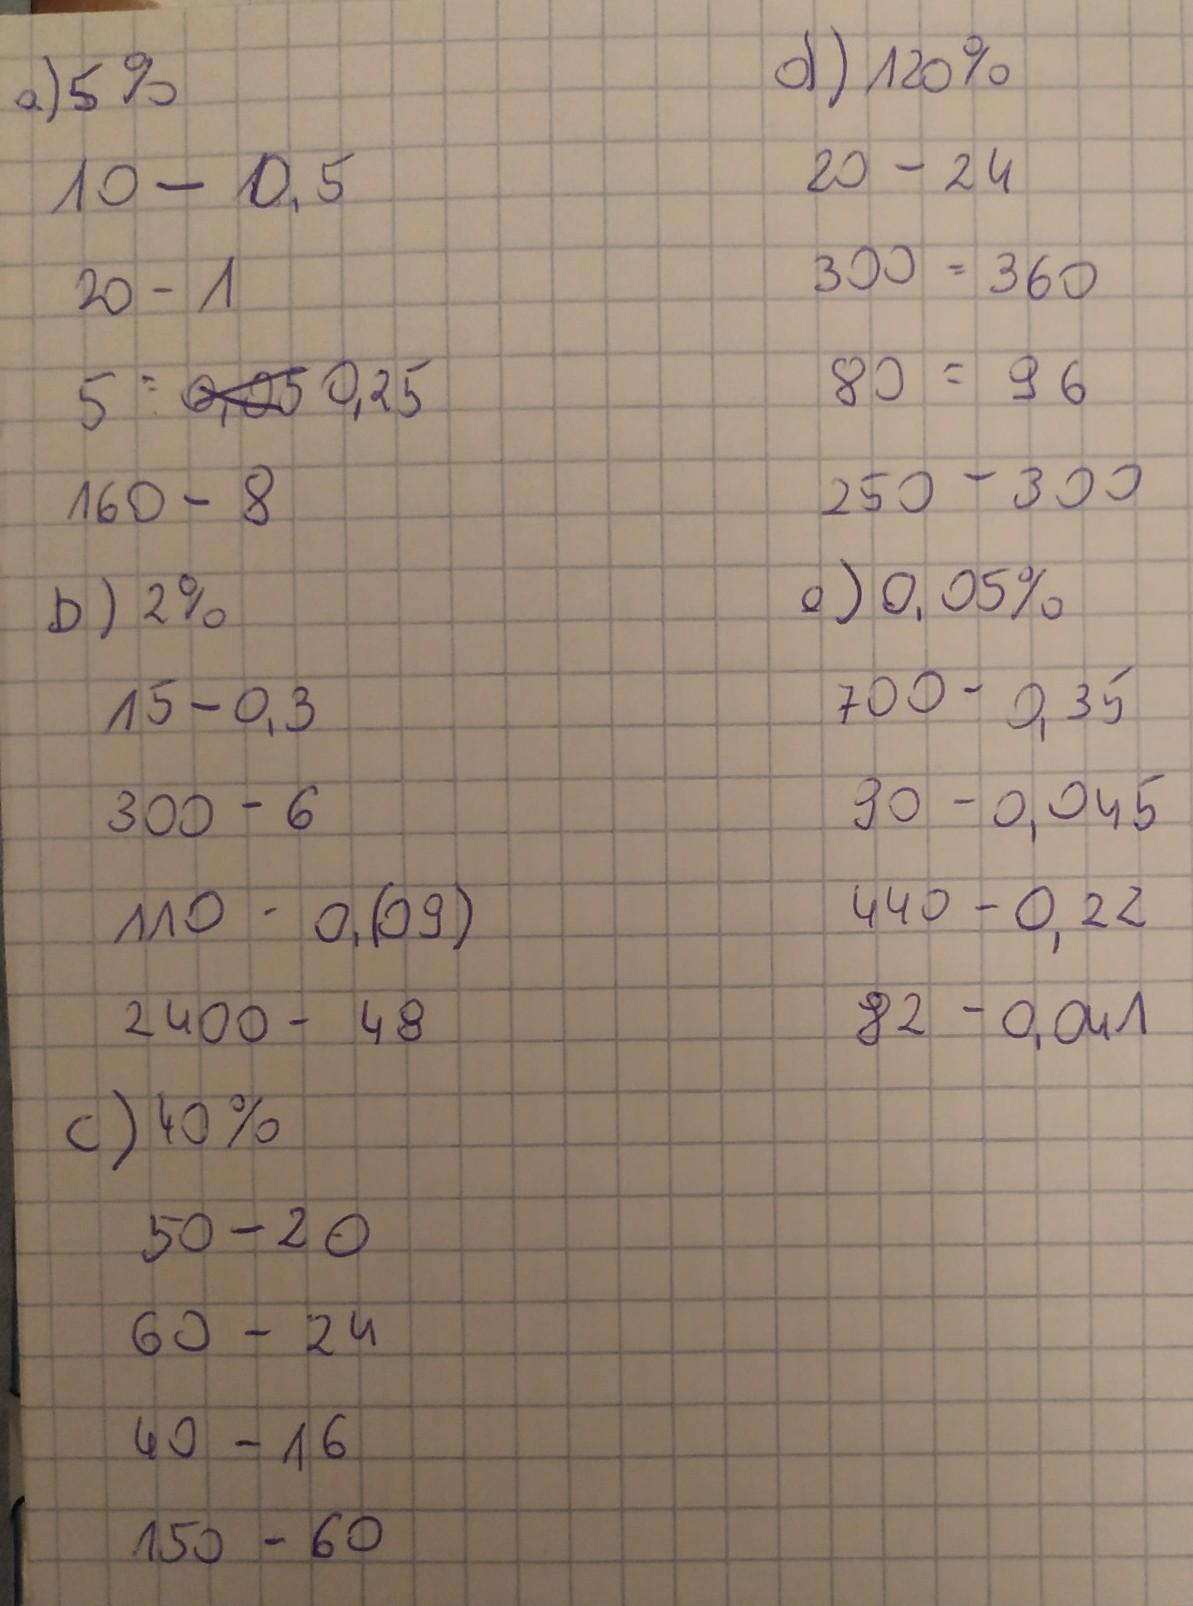 a) 5%
10 - 0,5
20 - 1
5 = 0,05 0,25
160 - 8
b) 2%
15 - 0,3
300 - 6
110 - 0,(09)
2400 - 48
c) 40%
50 - 20
60 - 24
40 - 16
150 - 60
d) 120%
20 - 24
300 = 360
80 = 96
250 - 300
e) 0,05%
700 - 0,35
90 - 0,045
440 - 0,22
82 - 0,041